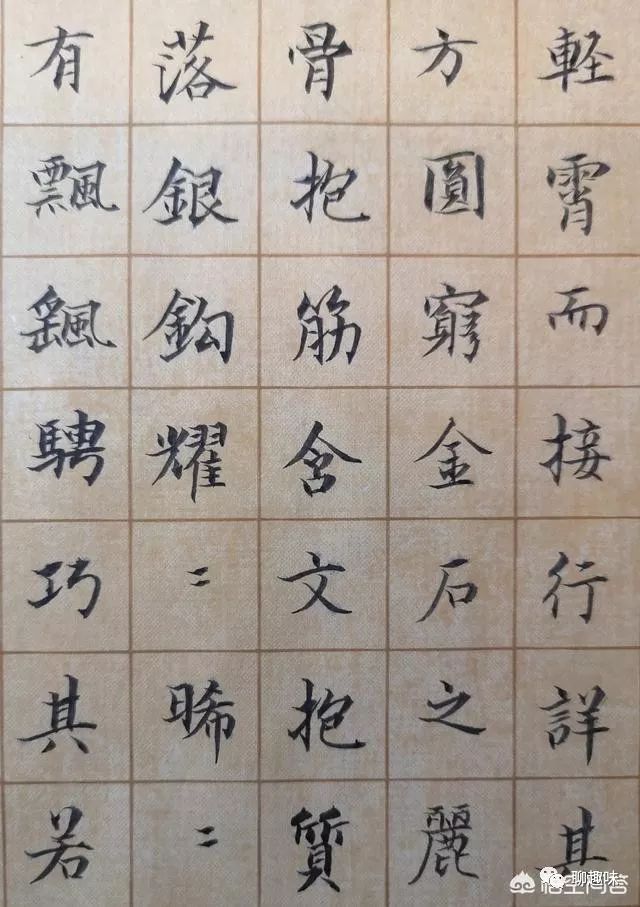 軽霄而接行詳其
方圓窮金石之麗
骨抱筋含文抱質
落銀鈎耀〻晞〻
有飄颻騁巧其若
聊趣味
悟空问答